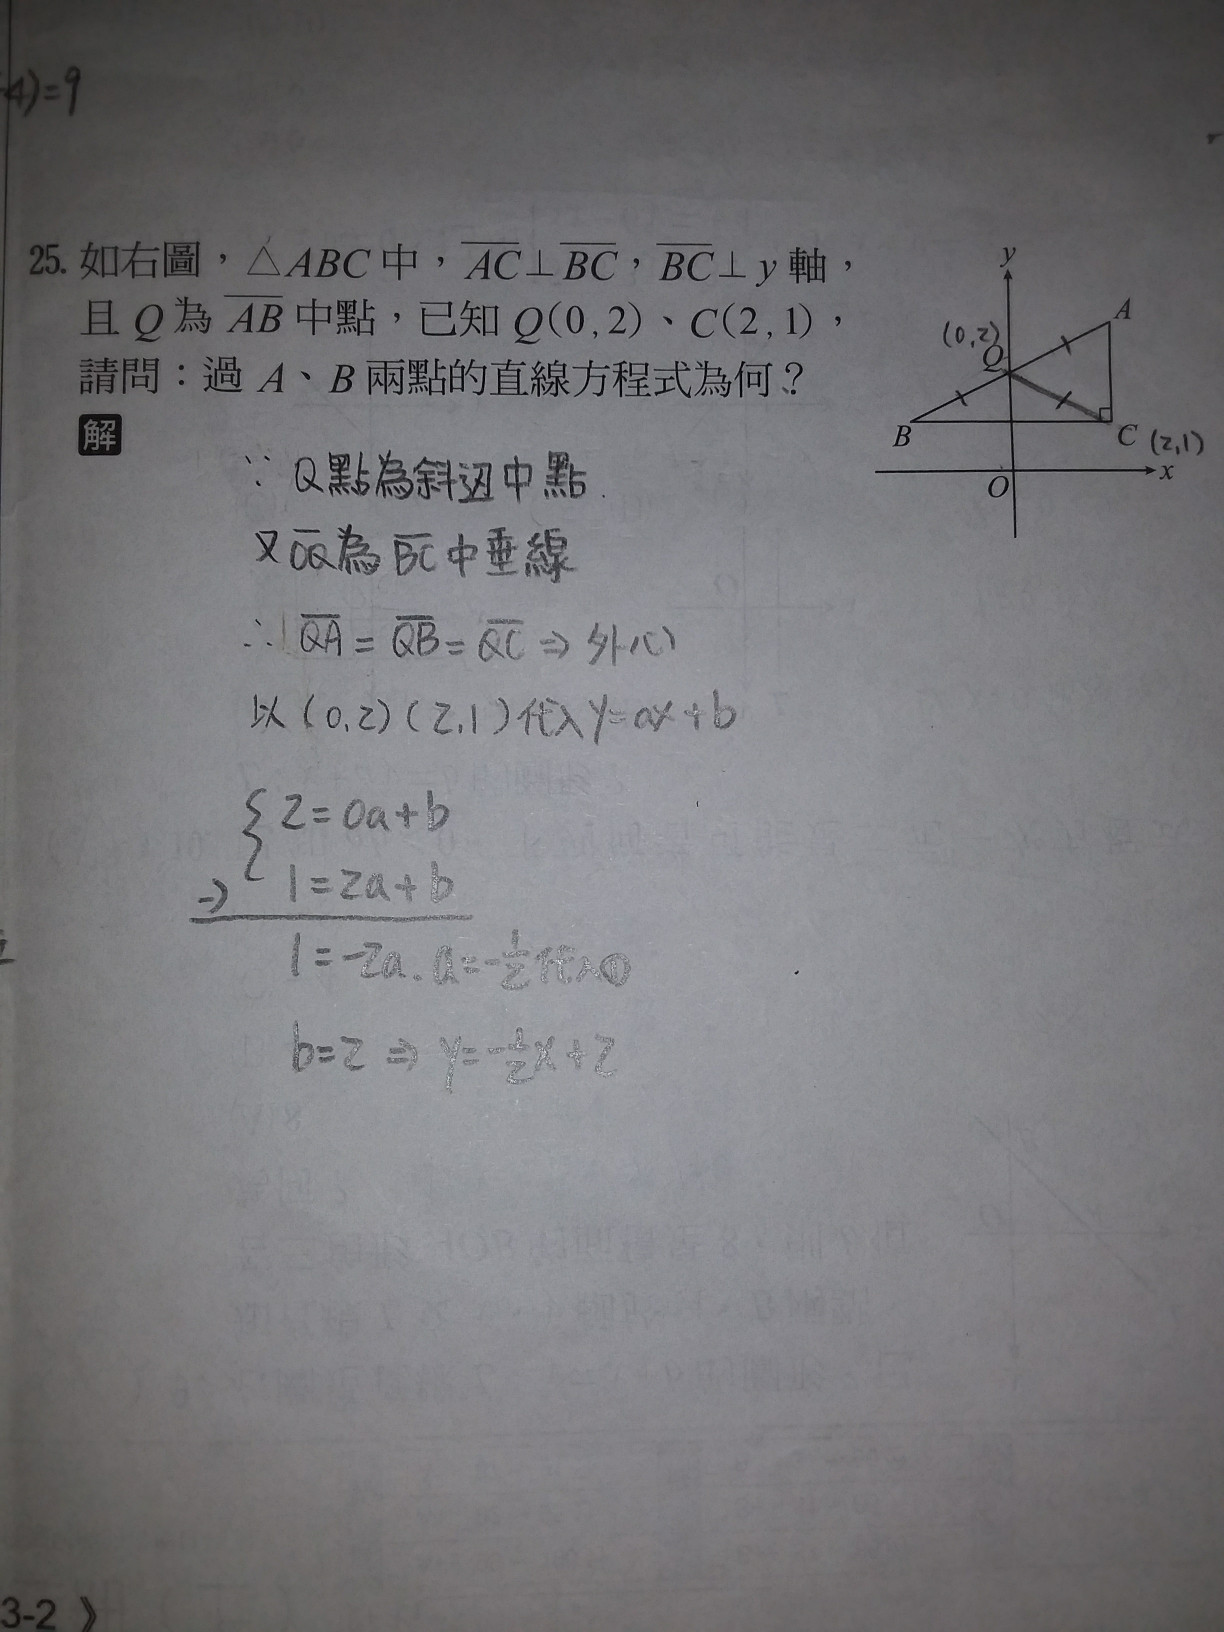 -4)=9
25. 如右圖，△ABC中，AC⊥BC，BC⊥y軸，
且Q為AB中點，已知Q(0,2)、C(2,1)，
請問：過A、B兩點的直線方程式為何？
解
y
A
(0,2)
Q
B
C (2,1)
x
O
∵ Q點為斜边中點
又OQ為BC中垂線
∴ QA = QB = QC ⇒ 外心
以(0,2)(2,1)代入y=ax+b
{ 2=0a+b
-) 1=2a+b
1=-2a. a=-1/2代入①
b=2 ⇒ y=-1/2x+2
3-2 》